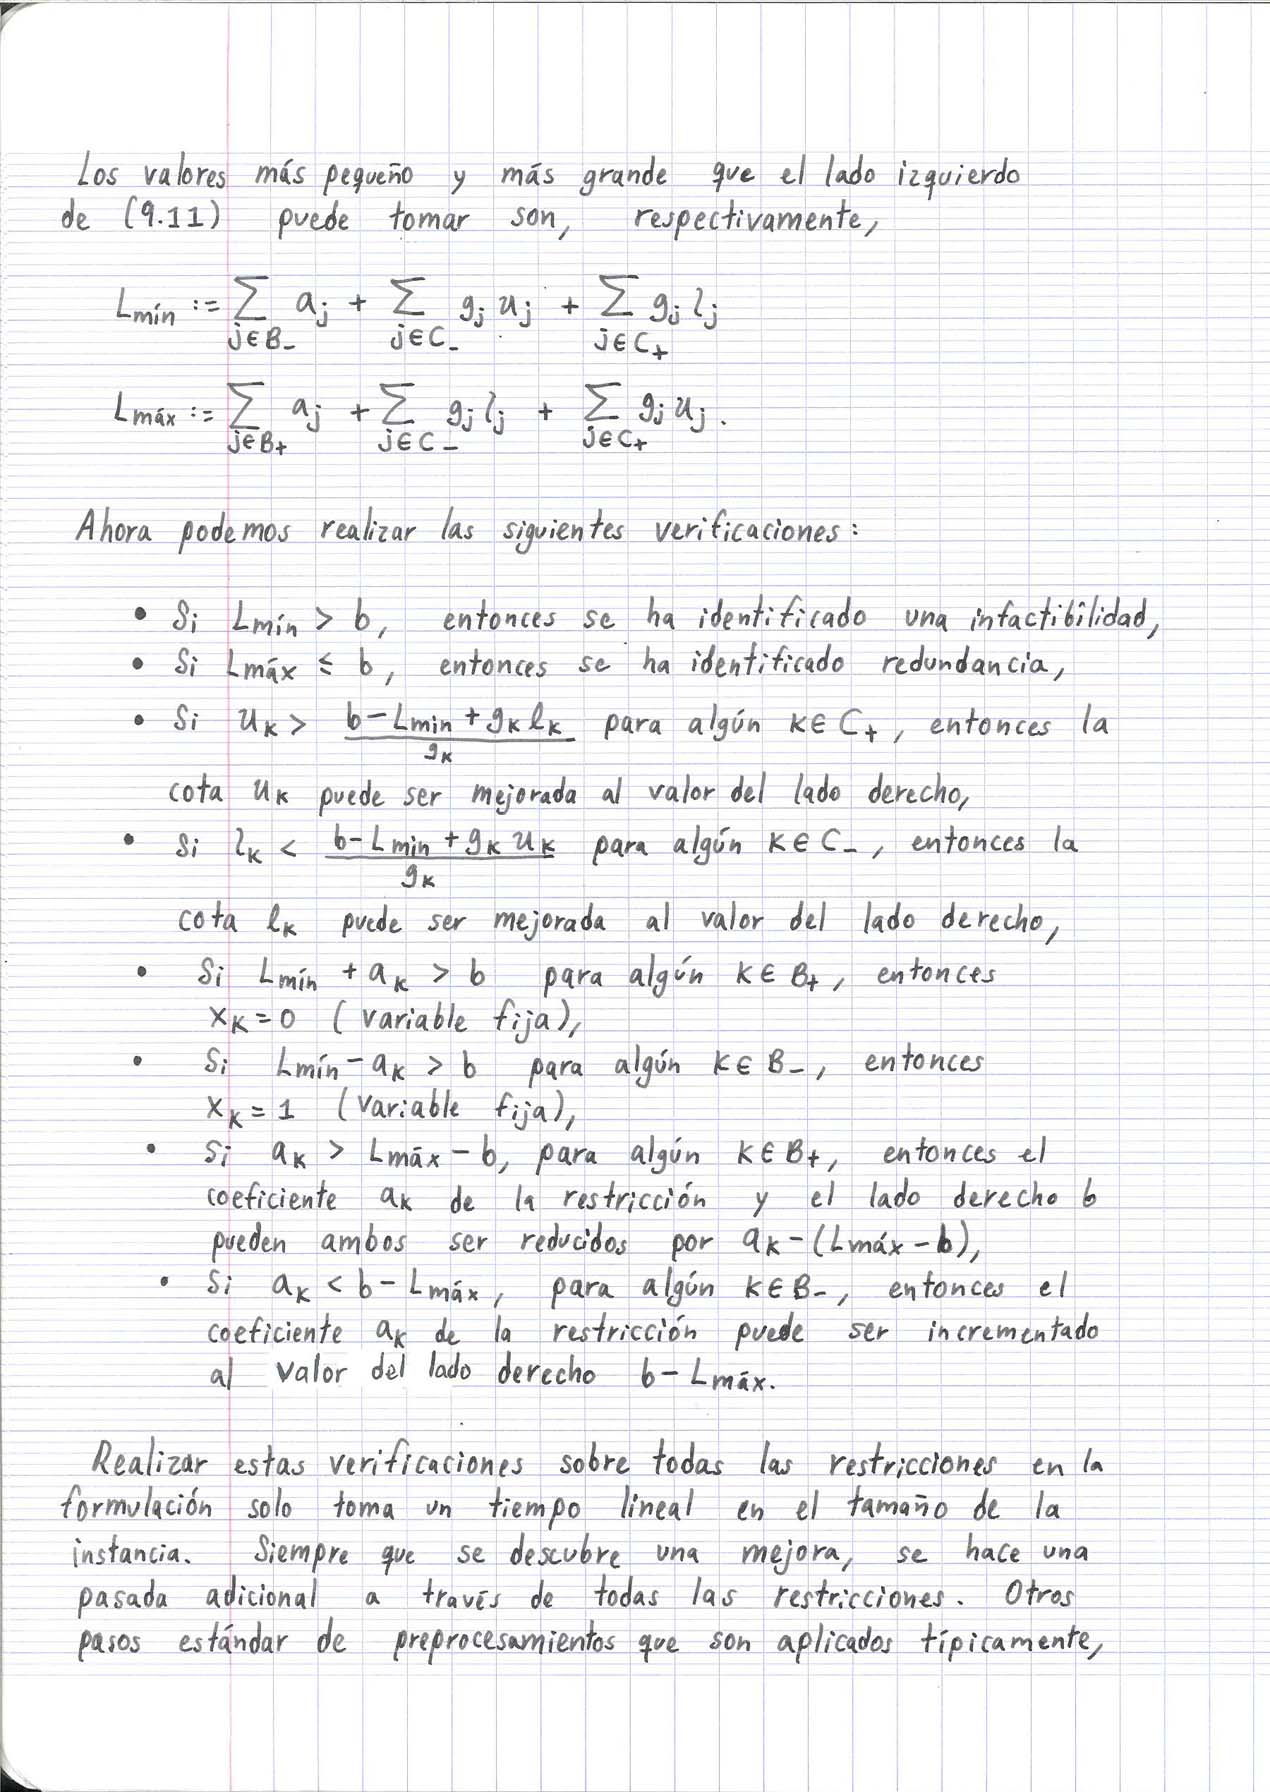 Los valores más pequeño y más grande que el lado izquierdo
de (9.11) puede tomar son, respectivamente,
L_mín := ∑_{j∈B_-} a_j + ∑_{j∈C_-} g_j u_j + ∑_{j∈C_+} g_j l_j
L_máx := ∑_{j∈B_+} a_j + ∑_{j∈C_-} g_j l_j + ∑_{j∈C_+} g_j u_j.
Ahora podemos realizar las siguientes verificaciones:
• Si L_mín > b, entonces se ha identificado una infactibilidad,
• Si L_máx ≤ b, entonces se ha identificado redundancia,
• Si u_k > (b - L_min + g_k l_k) / g_k para algún k ∈ C_+, entonces la
cota u_k puede ser mejorada al valor del lado derecho,
• Si l_k < (b - L_min + g_k u_k) / g_k para algún k ∈ C_-, entonces la
cota l_k puede ser mejorada al valor del lado derecho,
• Si L_mín + a_k > b para algún k ∈ B_+, entonces
x_k = 0 (variable fija),
• Si L_mín - a_k > b para algún k ∈ B_-, entonces
x_k = 1 (variable fija),
• Si a_k > L_máx - b, para algún k ∈ B_+, entonces el
coeficiente a_k de la restricción y el lado derecho b
pueden ambos ser reducidos por a_k - (L_máx - b),
• Si a_k < b - L_máx, para algún k ∈ B_-, entonces el
coeficiente a_k de la restricción puede ser incrementado
al valor del lado derecho b - L_máx.
Realizar estas verificaciones sobre todas las restricciones en la
formulación solo toma un tiempo lineal en el tamaño de la
instancia. Siempre que se descubre una mejora, se hace una
pasada adicional a través de todas las restricciones. Otros
pasos estándar de preprocesamientos que son aplicados típicamente,